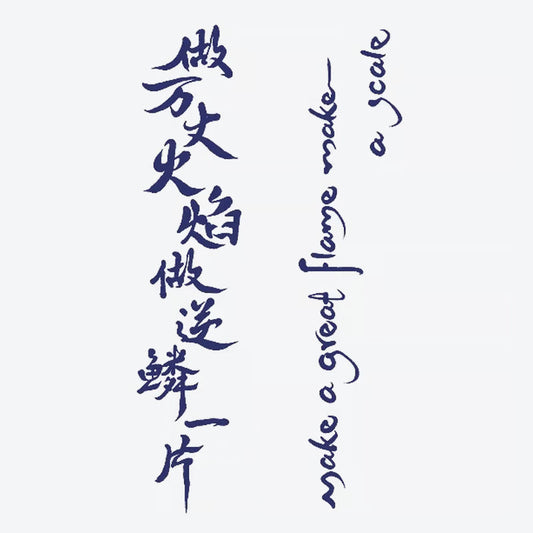 做万丈火焰做逆鳞一片
make a great flame make
a scale